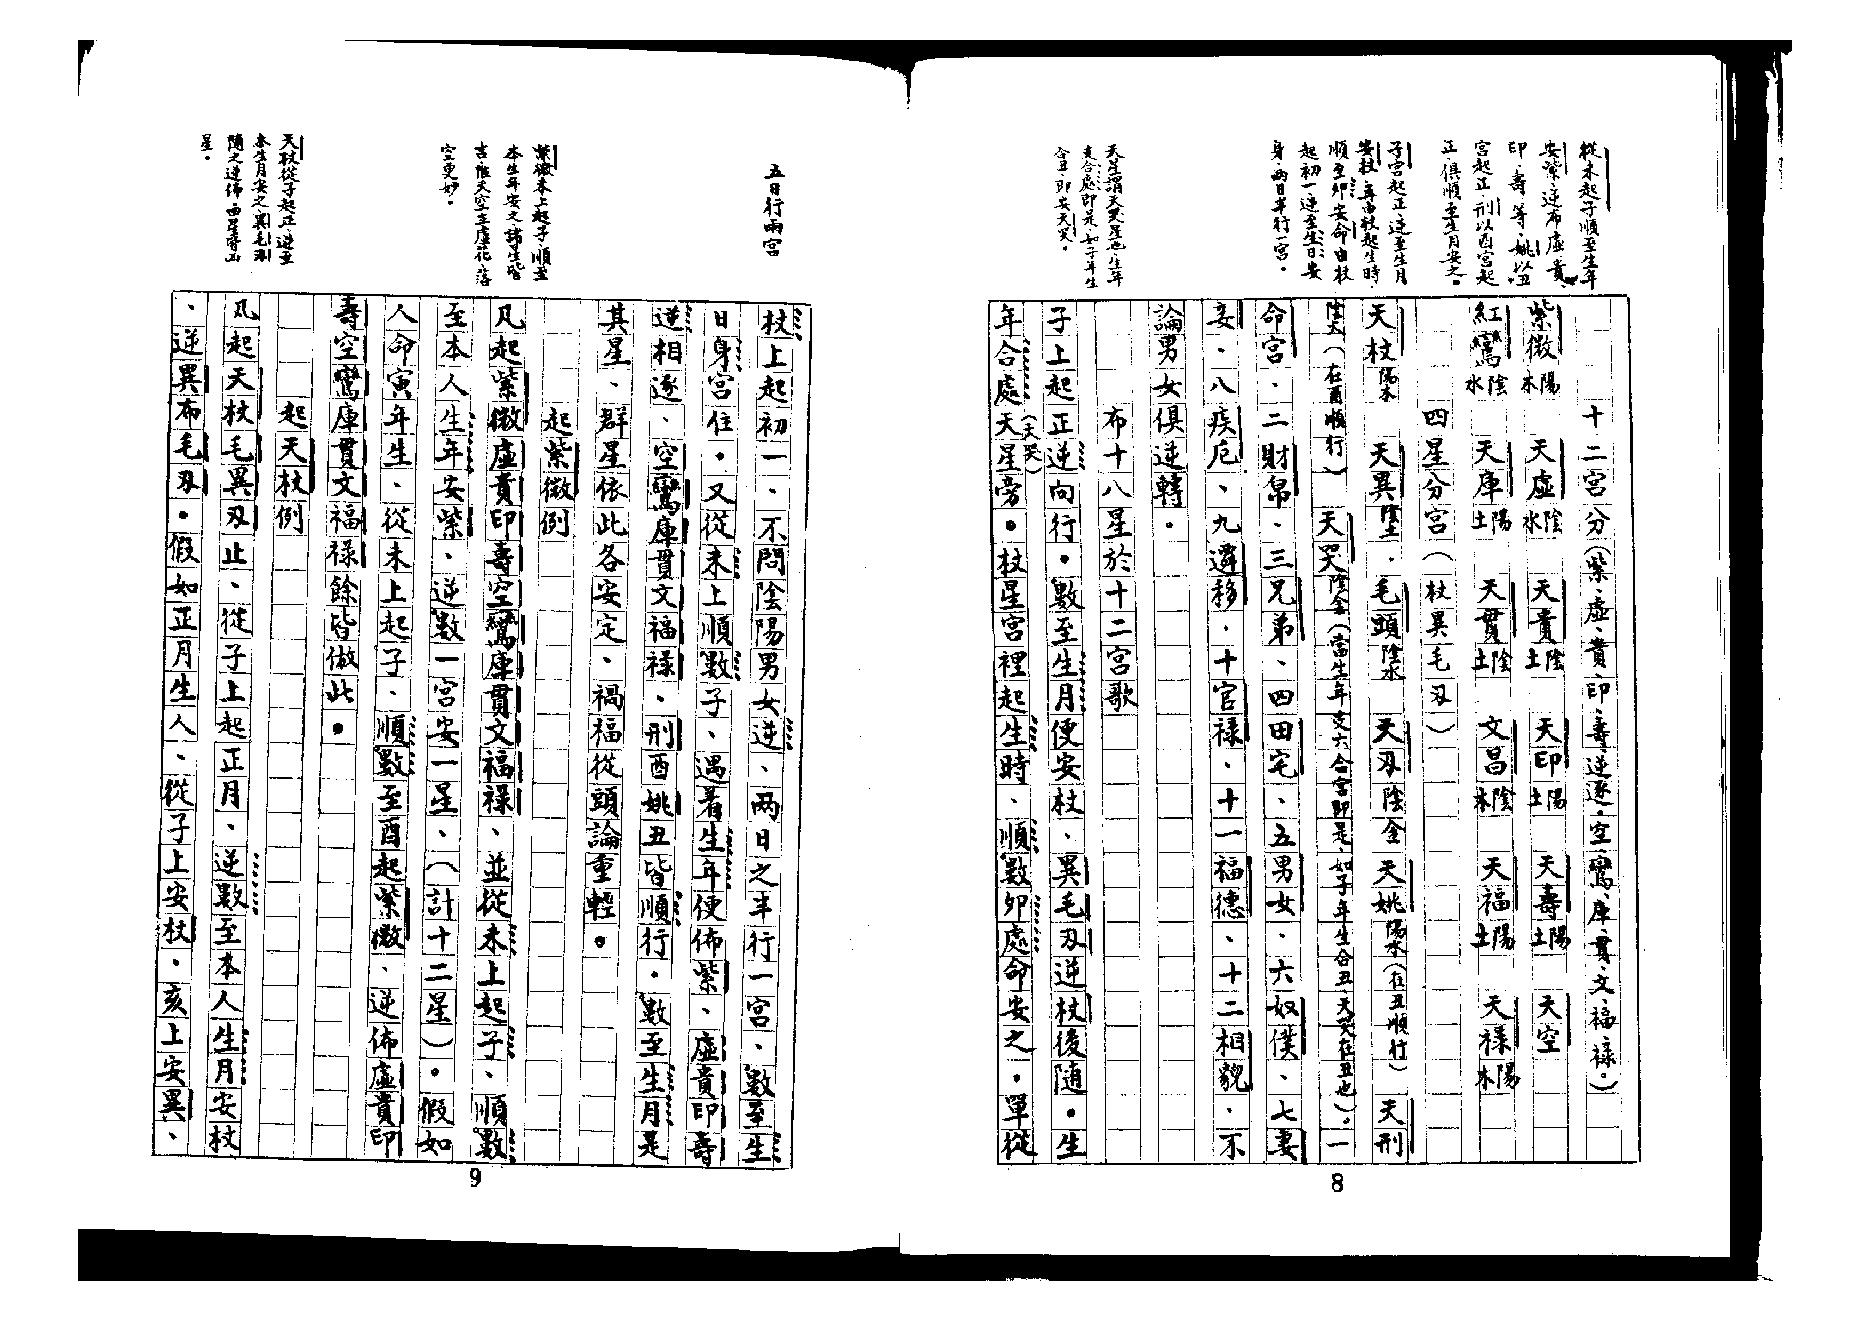 從未起子順至生年
安紫逆布虛貴
印、壽等、姚以丑
宮起正刑以酉宮起
正俱順至生月安之。
子宮起正逆至生月
安杖、年由杖起生時
順至卯安命由杖
起初一逆至生日安
身兩日半行一宮。
天星謂天哭星也生年
支合處即是、如子年生
合丑即安天哭。
十二宮分(紫、虛、貴、印、壽、逆逐、空、鸞、庫、貫、文、福、祿。)
紫微陽木 天虛陰水 天貴陰土 天印陽土 天壽陽土 天空
紅鸞陰水 天庫陽土 天貫陰土 文昌陰木 天福陽土 天祿陽木
四星分宮(杖異毛刃)
天杖陽木 天異陰土、毛頭陰水 天刃陰金 天姚陽水(在丑順行) 天刑
陰火(在酉順行) 天哭陰金(當生年支六合宮即是、如子年生合丑天哭在丑也)。一
命宮、二財帛、三兄弟、四田宅、五男女、六奴僕、七妻
妾、八疾厄、九遷移、十官祿、十一福德、十二相貌、不
論男女俱逆轉。
布十八星於十二宮歌
子上起正逆向行。數至生月便安杖、異毛刃逆杖後隨。生
年合處天星旁(天哭)。杖星宮裡起生時、順數卯處命安之。單從
8
五日行兩宮
紫微未上起子順至
本生年安之諸星皆
吉惟天空主虛花落
空更妙。
天杖從子起正、逆至
本生月安之異毛刃
隨之逆佈四星為凶
星。
杖上起初一、不問陰陽男女逆、兩日之半行一宮、數至生
日身宮住。又從未上順數子、遇著生年便佈紫、虛貴印壽
逆相逐、空鸞庫貫文福祿、刑酉姚丑皆順行。數至生月是
其星、群星依此各安定、禍福從頭論重輕。
起紫微例
凡起紫微虛貴印壽空鸞庫貫文福祿、並從未上起子、順數
至本人生年安紫、逆數一宮安一星、(計十二星)。假如
人命寅年生、從未上起子、順數至酉起紫微、逆佈虛貴印
壽空鸞庫貫文福祿餘皆倣此。
起天杖例
凡起天杖毛異刃止、從子上起正月、逆數至本人生月安杖
、逆異布毛刃。假如正月生人、從子上安杖、亥上安異、
9